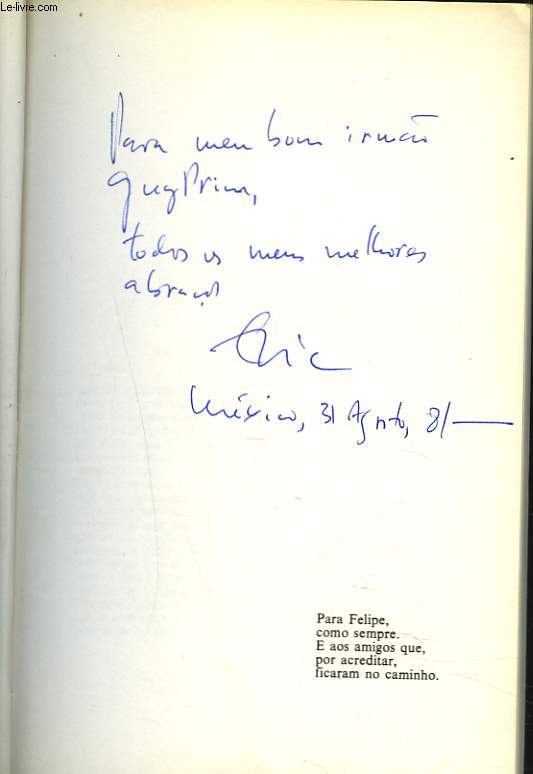 Le-livre.com
Para meu bom irmão
Guy Prim,
todos os meus melhores
abraços
Eric
México, 31 Agosto, 81
Para Felipe,
como sempre.
E aos amigos que,
por acreditar,
ficaram no caminho.